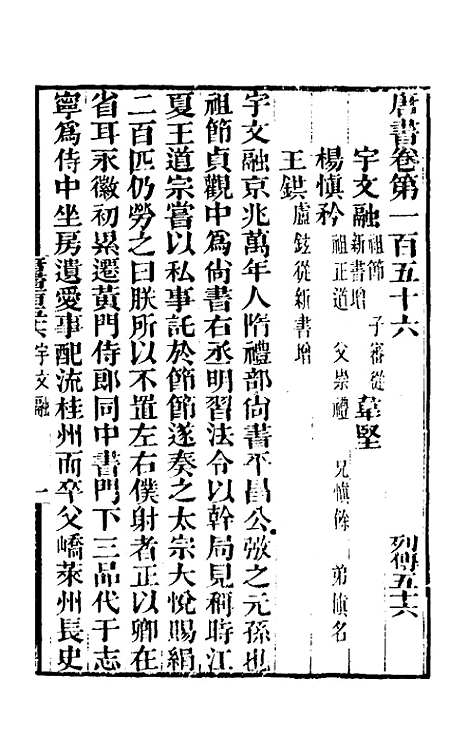 唐書卷第一百五十六 列傳五十六
宇文融 祖節 子審從新書增 韋堅
楊慎矜 祖正道 父崇禮 兄慎餘 弟慎名
王鉷 盧鉉從新書增
宇文融京兆萬年人隋禮部尚書平昌公㢸之元孫也
祖節貞觀中爲尚書右丞明習法令以幹局見稱時江
夏王道宗嘗以私事託於節節遂奏之太宗大悅賜絹
二百匹仍勞之曰朕所以不置左右僕射者正以卿在
省耳永徽初累遷黃門侍郎同中書門下三品代于志
寧爲侍中坐房遺愛事配流桂州而卒父嶠萊州長史
宇文融 一